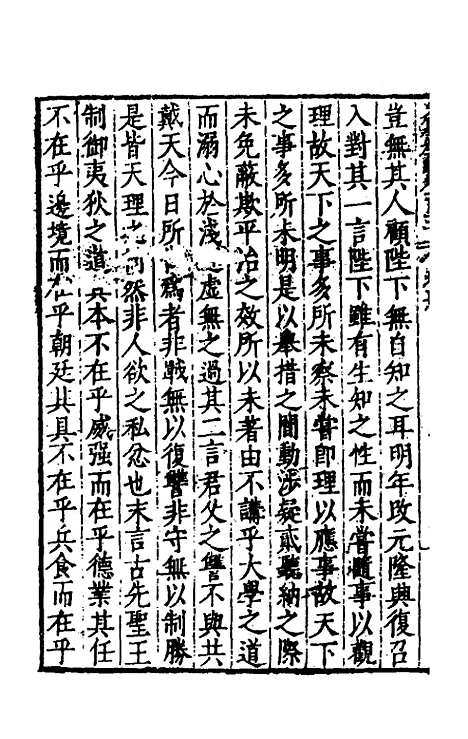 豈無其人顧陛下無自知之耳明年改元隆興復召
入對其一言陛下雖有生知之性而未嘗隨事以觀
理故天下之事多所未察未嘗即理以應事故天下
之事多所未明是以舉措之間動涉疑貳聽納之際
未免蔽欺平治之效所以未著由不講乎大學之道
而溺心於淺虛無之過其二言君父之讐不與共
戴天今日所爲者非戰無以復讐非守無以制勝
是皆天理然非人欲之私忿也末言古先聖王
制御夷狄之道其本不在乎威强而在乎德業其任
不在乎邊境而在乎朝廷其具不在乎兵食而在乎